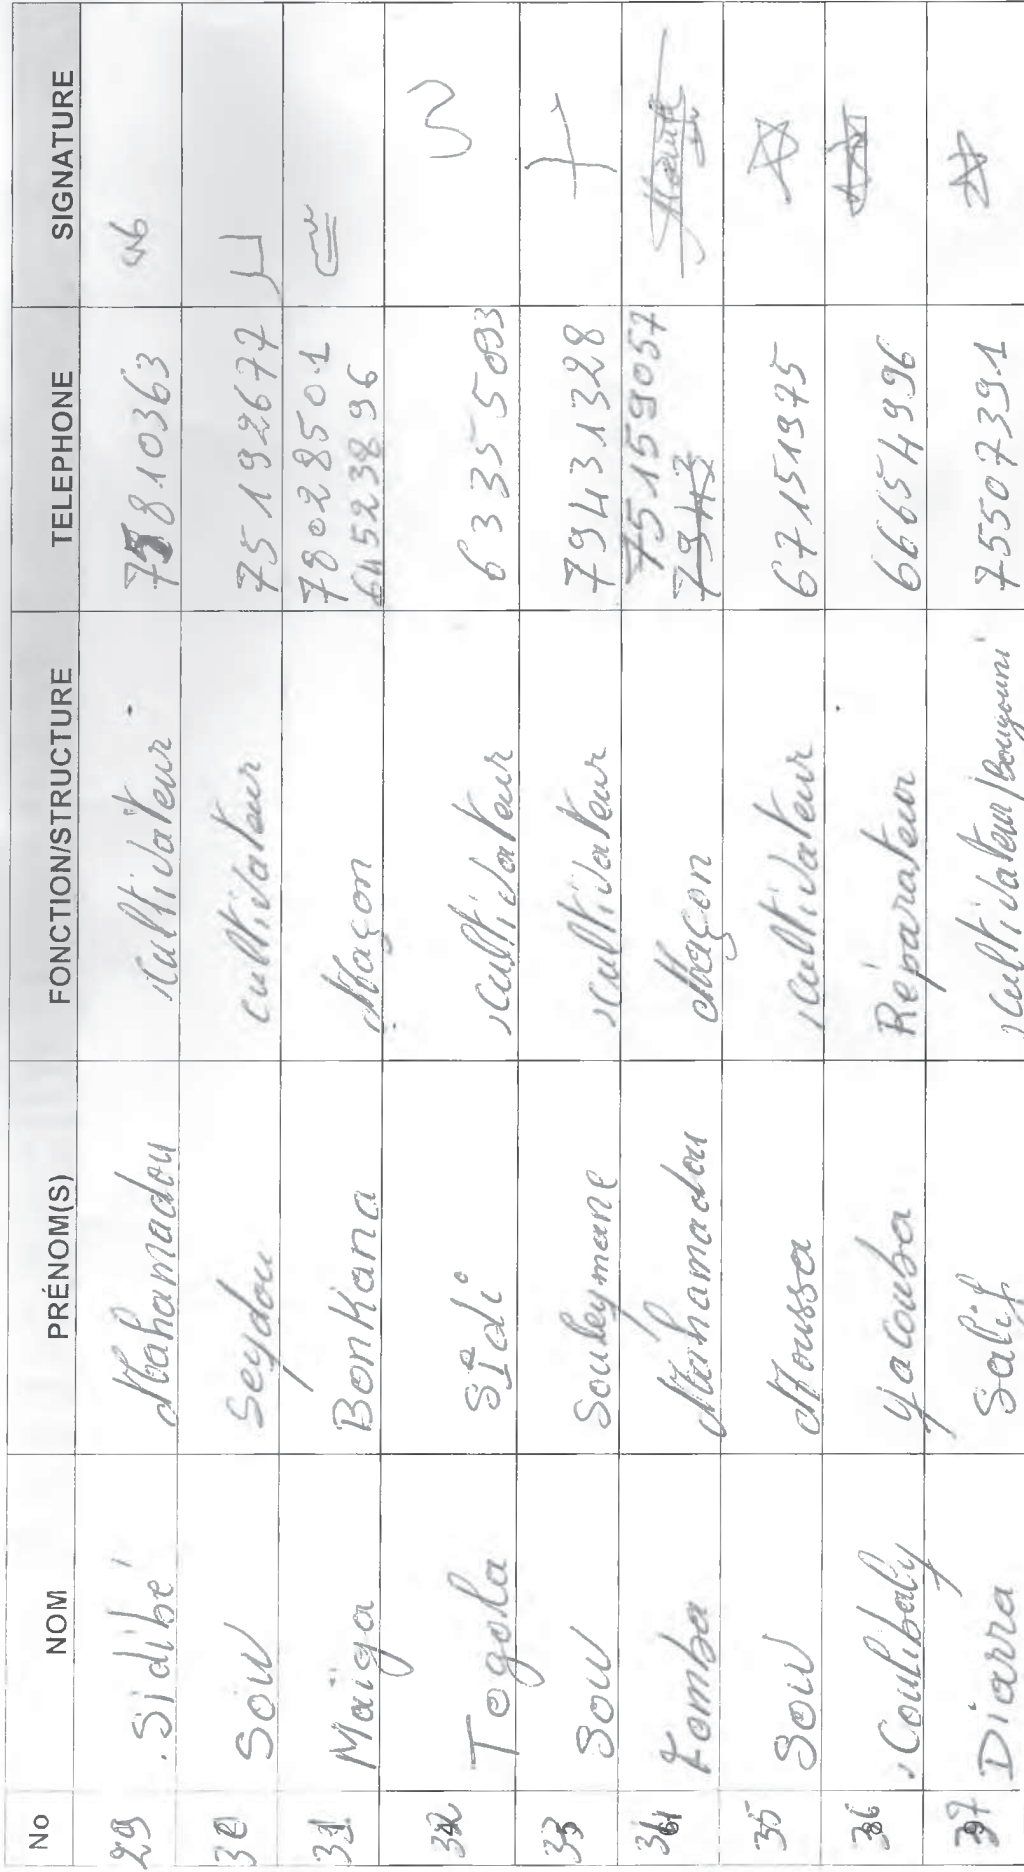 No NOM PRÉNOM(S) FONCTION/STRUCTURE TELEPHONE SIGNATURE
29 Sidibé Mahamadou Cultivateur 75810363
30 Sow Seydou Cultivateur 75192677
31 Maïga Bonkana Maçon 78028501
64523896
32 Togola Sidi Cultivateur 63355093
33 Sow Souleymane Cultivateur 79431328
34 Fomba Mahamadou Maçon 75159057
7943
35 Sow Moussa Cultivateur 67151975
36 Coulibaly Yacouba Réparateur 66654996
37 Diarra Salif Cultivateur/Bougouni 75507391